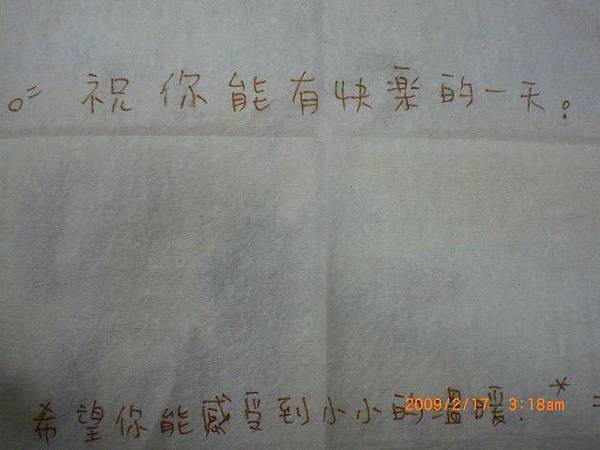 祝你能有快樂的一天。
希望你能感受到小小的溫暖.*
2009/2/17 3:18am